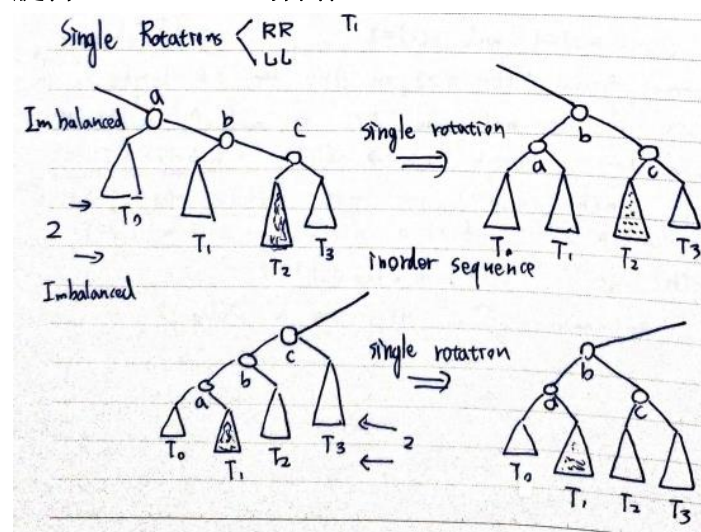 Single Rotations RR T₁
LL
a
Imbalanced b c single rotation b
a c
T₀ T₁ T₂ T₃ T₀ T₁ T₂ T₃
2
inorder sequence
Imbalanced
c single rotation b
b
a a c
T₀ T₁ T₂ T₃ 2 T₀ T₁ T₂ T₃